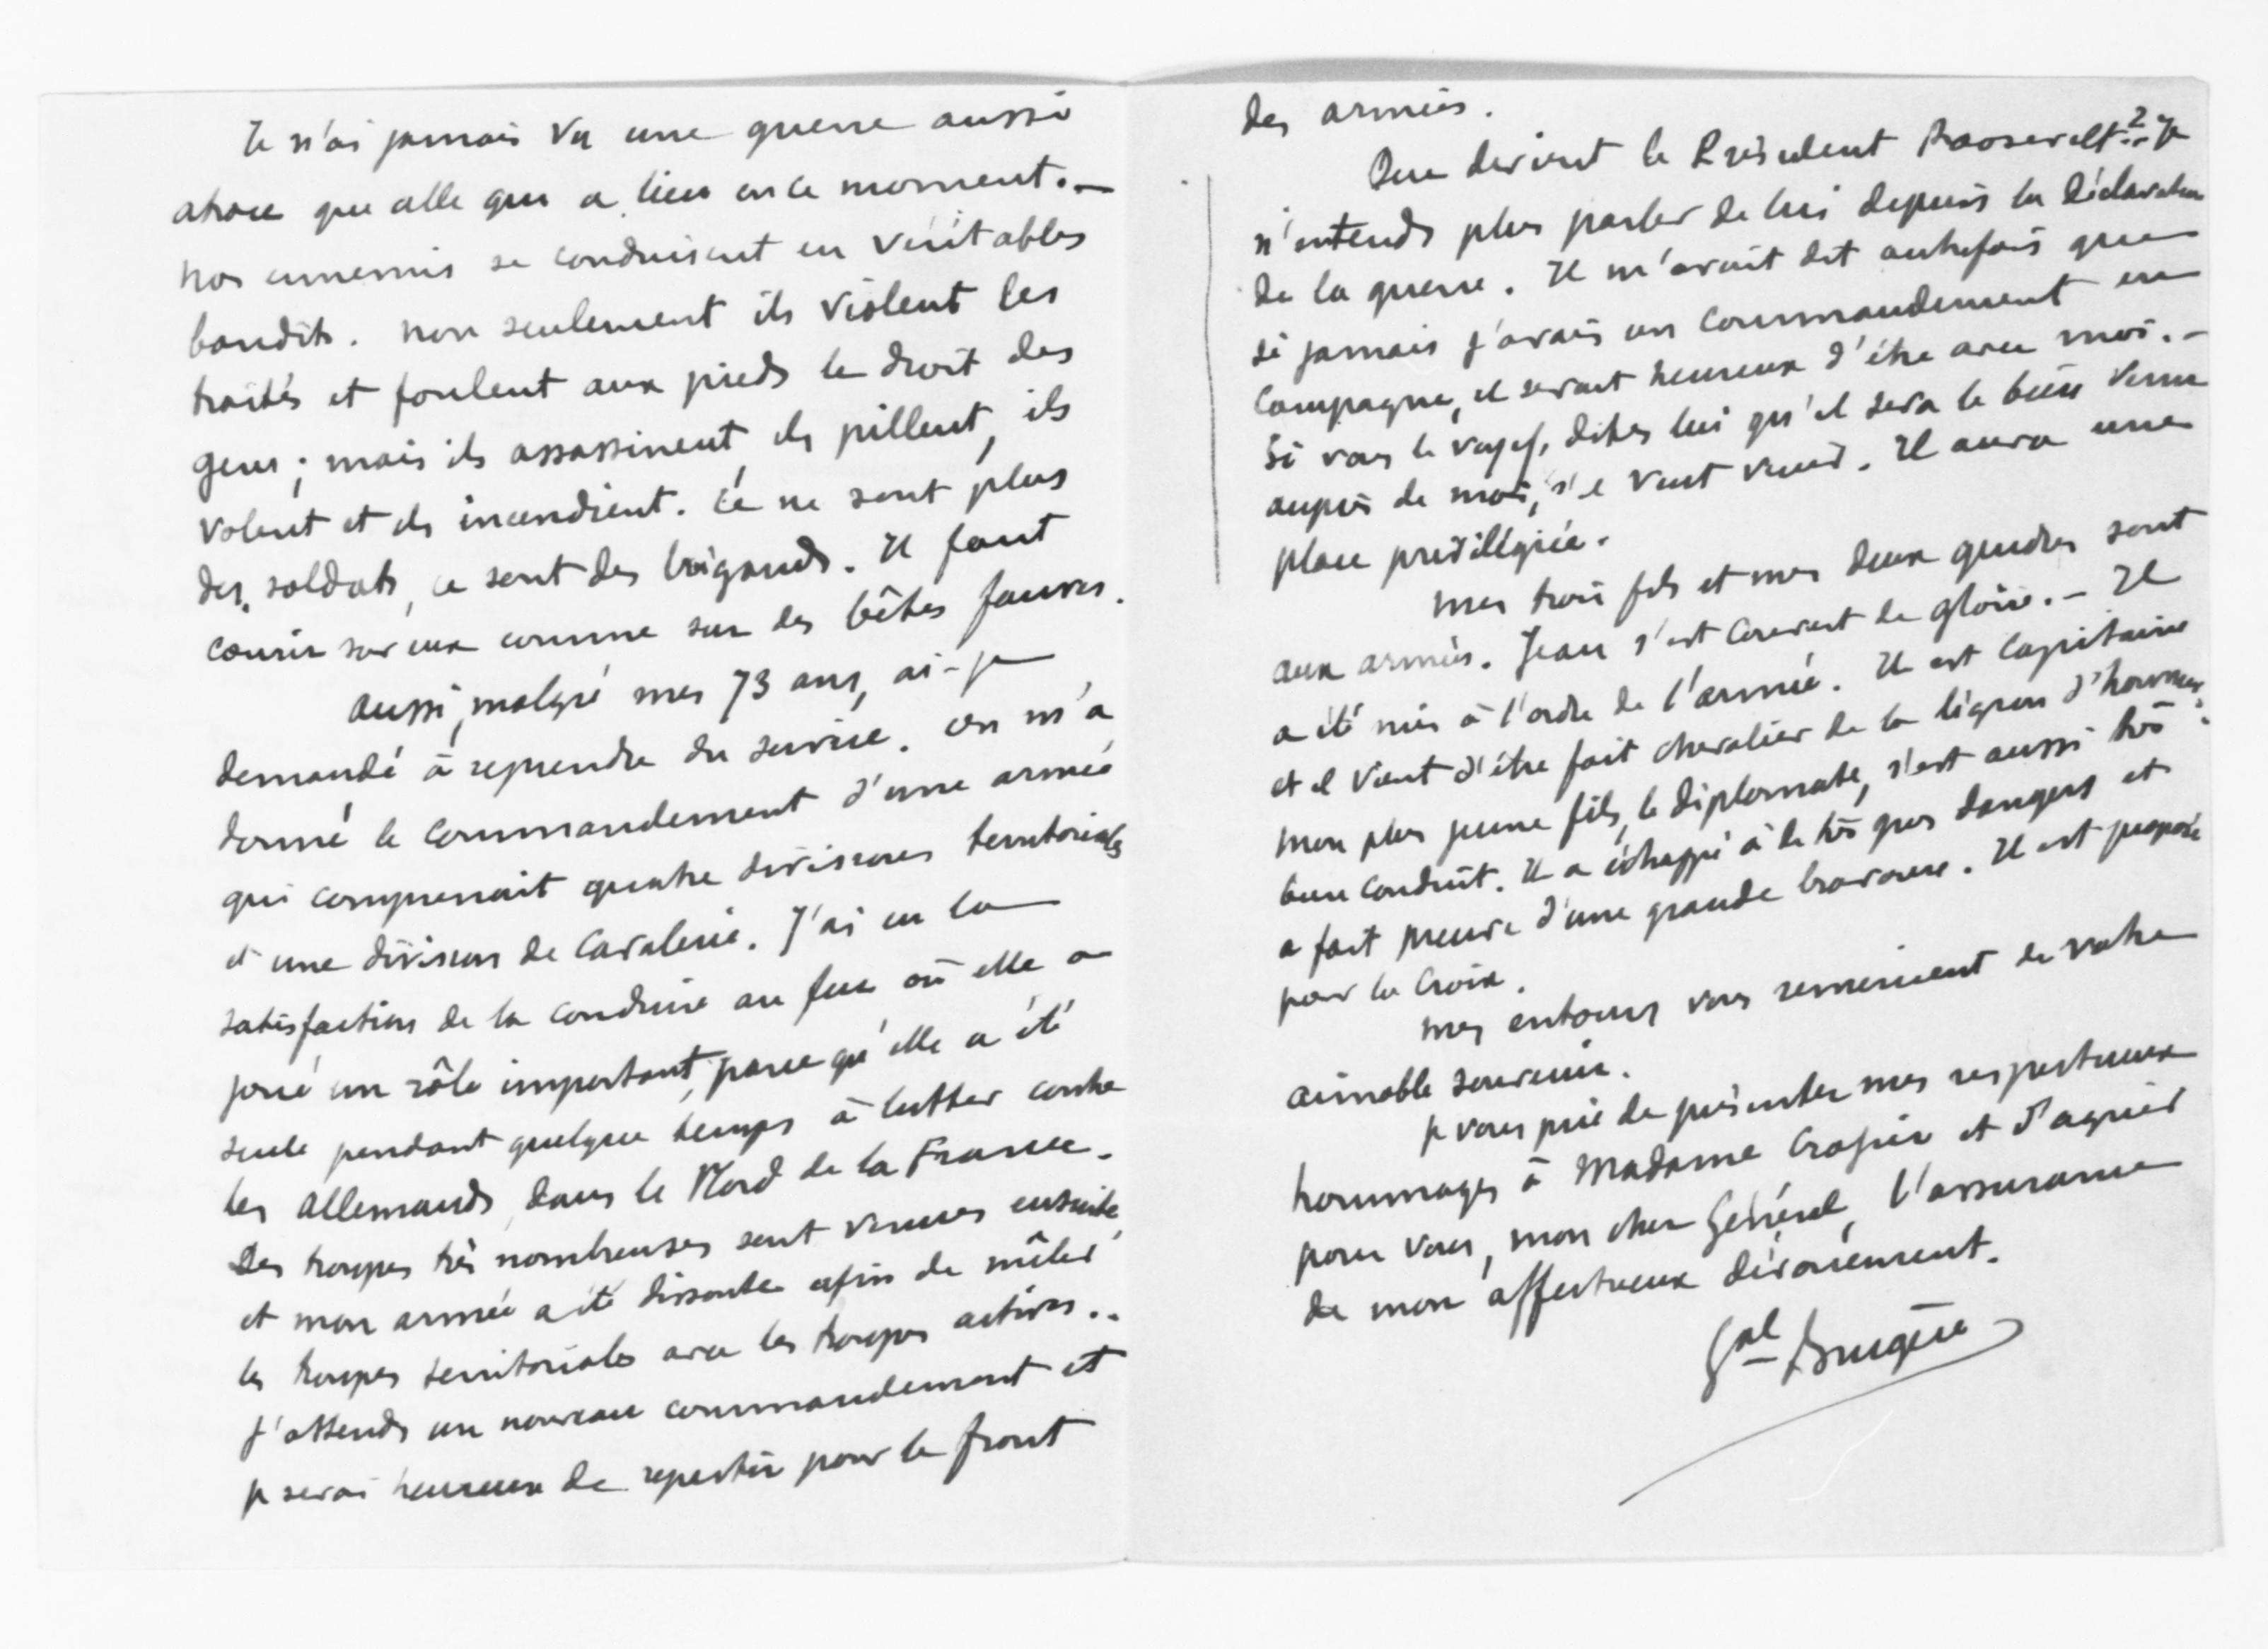 Je n'ai jamais vu une guerre aussi
atroce que celle qui a lieu en ce moment. —
Nos ennemis se conduisent en véritables
bandits. Non seulement ils violent les
traités et foulent aux pieds le droit des
gens ; mais ils assassinent, ils pillent, ils
volent et ils incendient. Ce ne sont plus
des soldats, ce sont des brigands. Il faut
courir sur eux comme sur des bêtes fauves.
Aussi, malgré mes 73 ans, ai-je
demandé à reprendre du service. On m'a
donné le commandement d'une armée
qui comprenait quatre divisions territoriales
et une division de cavalerie. J'ai eu la
satisfaction de la conduire au feu où elle a
joué un rôle important, parce qu'elle a été
seule pendant quelque temps à lutter contre
les Allemands, dans le Nord de la France.
Des troupes très nombreuses sont venues ensuite,
et mon armée a été dissoute afin de mêler
les troupes territoriales avec les troupes actives..
J'attends un nouveau commandement et
je serai heureux de repartir pour le front
des armées.
Que devient le Président Roosevelt ? Je
n'entends plus parler de lui depuis la déclaration
de la guerre. Il m'avait dit autrefois que
si jamais j'avais un commandement en
campagne, il serait heureux d'être avec moi. —
Si vous le voyez, dites lui qu'il sera le bien venu
auprès de moi, s'il veut venir. Il aura une
place privilégiée.
Mes trois fils et mes deux gendres sont
aux armées. Jean s'est couvert de gloire. — Il
a été mis à l'ordre de l'armée. Il est capitaine
et il vient d'être fait chevalier de la légion d'honneur.
Mon plus jeune fils, le diplomate, s'est aussi très
bien conduit. Il a échappé à de très gros dangers et
a fait preuve d'une grande bravoure. Il est proposé
pour la Croix.
Mes entours vous remercient de votre
aimable souvenir.
Je vous prie de présenter mes respectueux
hommages à Madame Crozier et d'agréer
pour vous, mon cher Général, l'assurance
de mon affectueux dévouement.
Gal Brugère